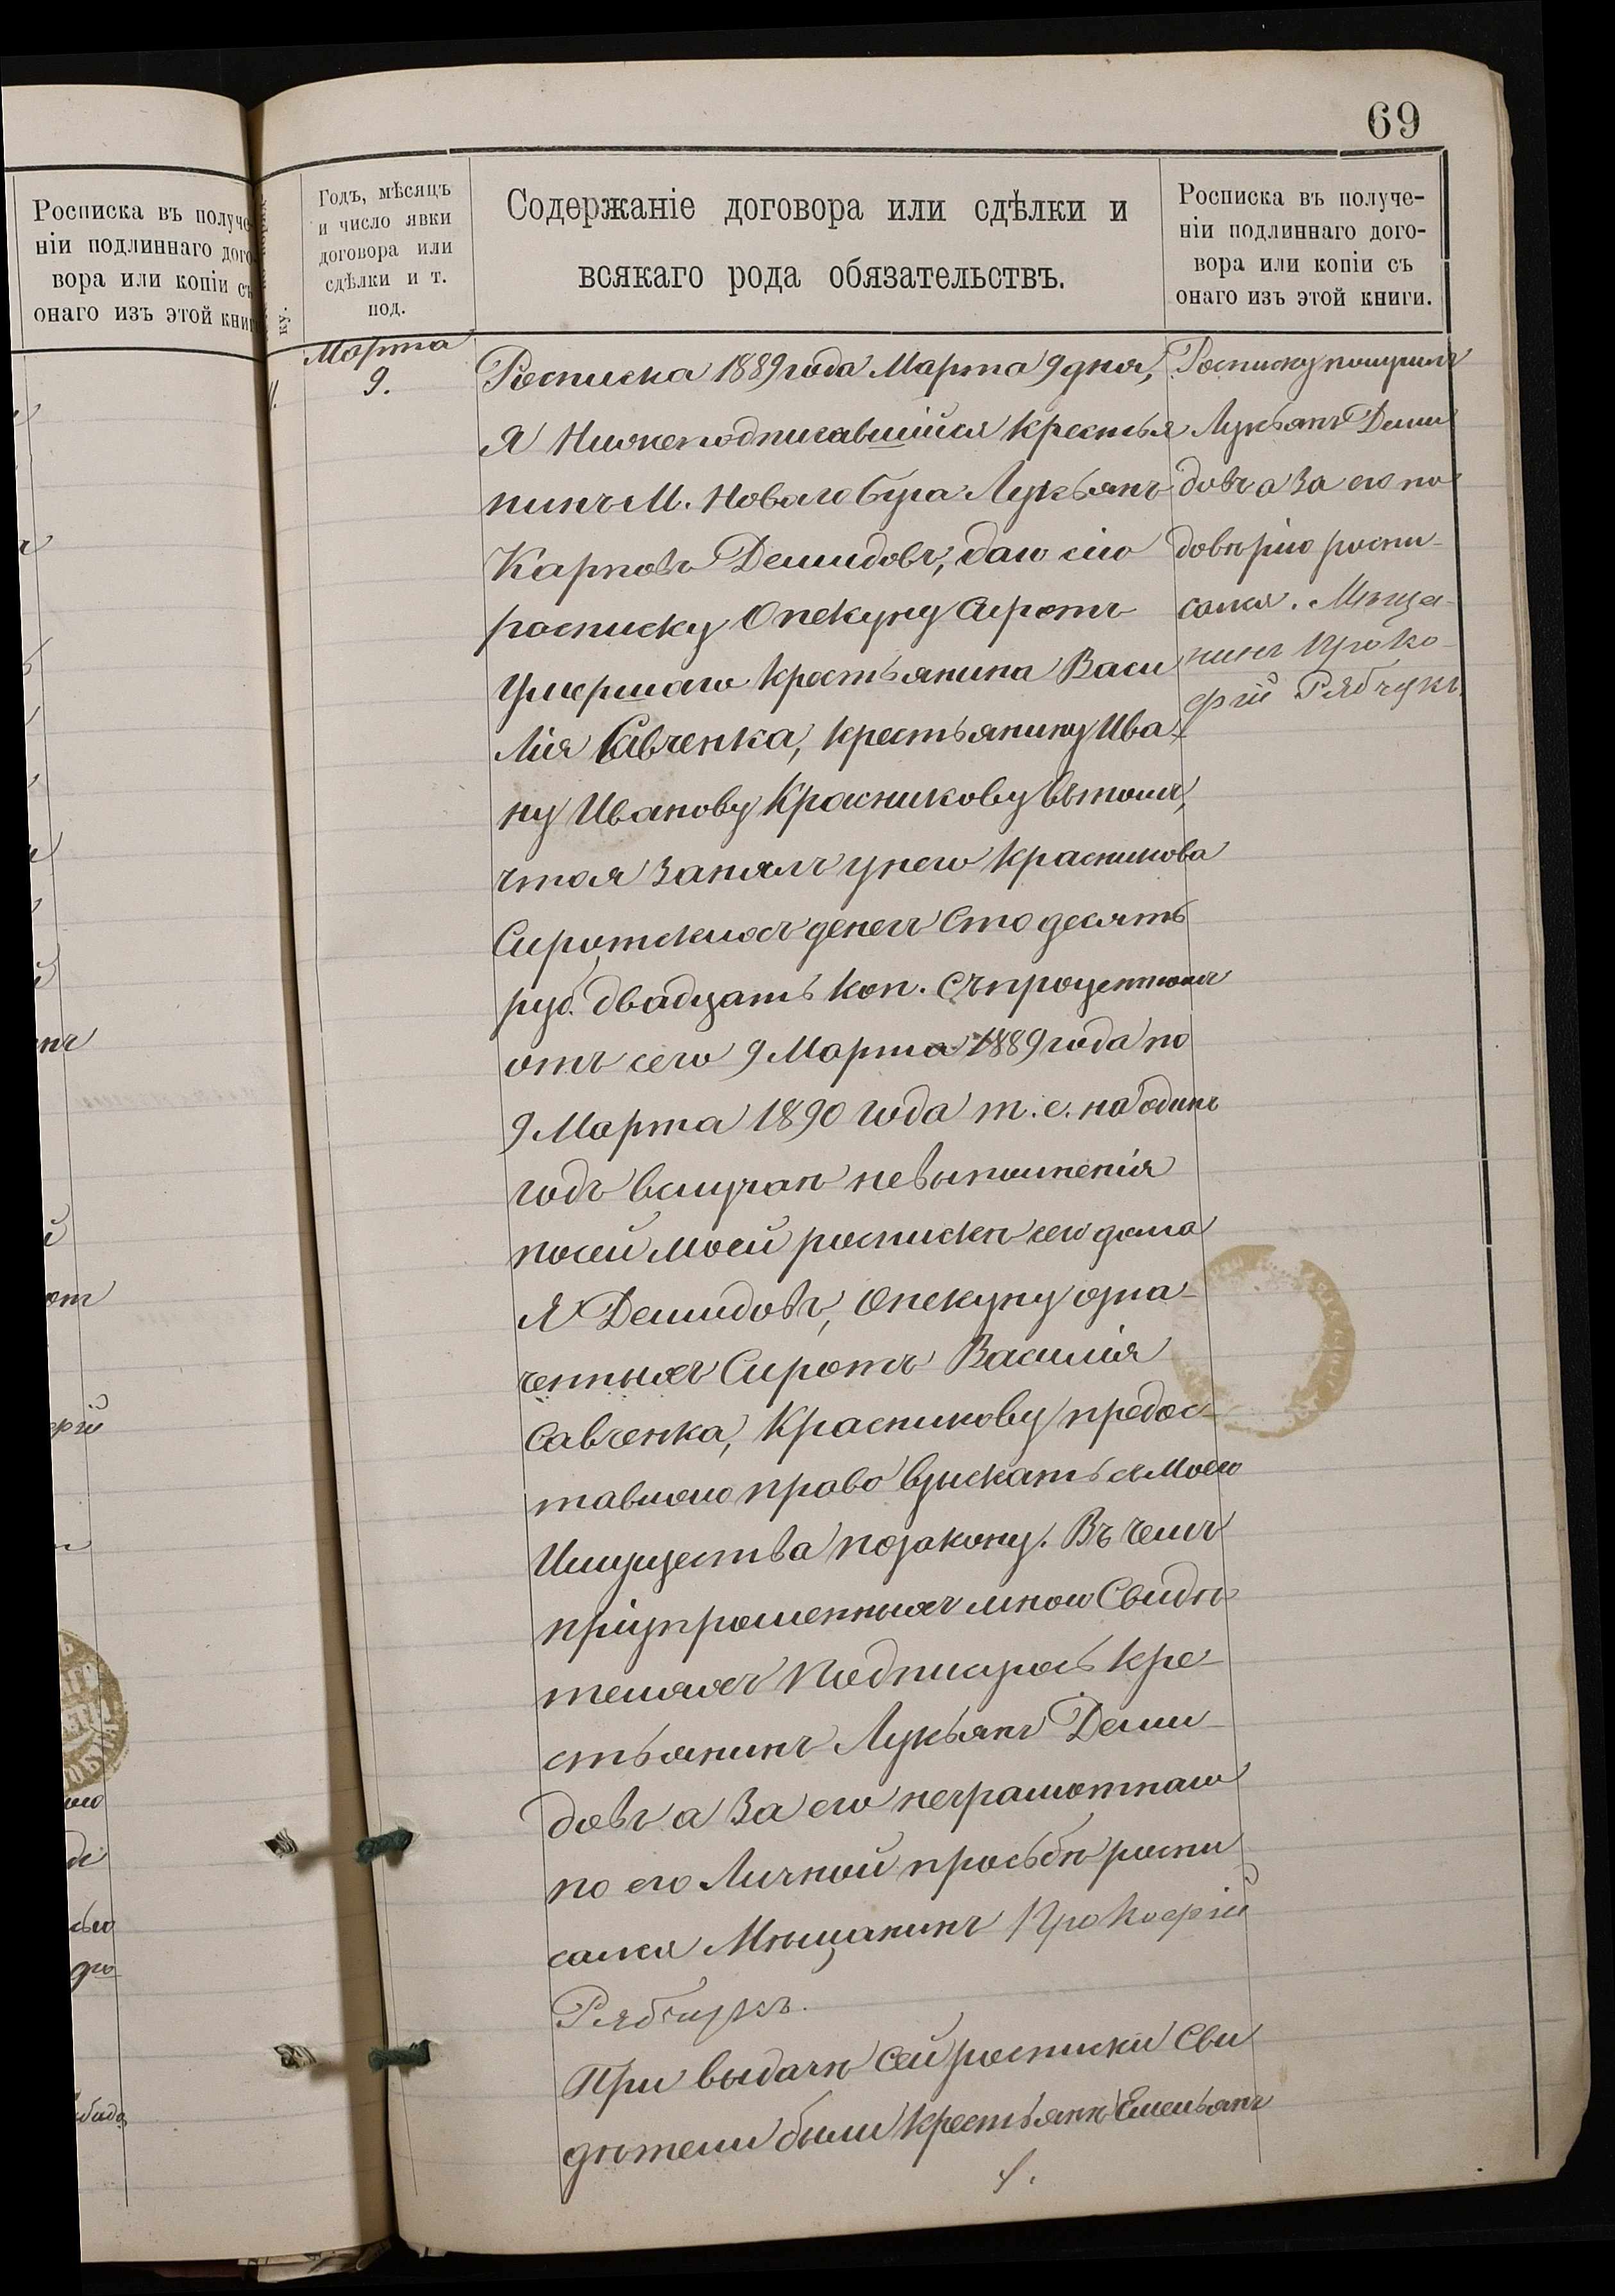 69
Росписка въ получе
ніи подлиннаго дого
вора или копіи съ
онаго изъ этой книг
ку.
Годъ, мѣсяцъ
и число явки
договора или
сдѣлки и т.
под.
Содержаніе договора или сдѣлки и
всякаго рода обязательствъ.
Росписка въ получе-
ніи подлиннаго дого-
вора или копіи съ
онаго изъ этой книги.
Марта
9.
Росписка 1889 года Марта 9 дня,
я Нижеподписавшійся крестья
нинъ М. Новаго Буга Лукьянъ
Карповъ Демидовъ, даю сію
росписку Опекуну Сиротъ
умершаго крестьянина Васи
лія Савченка, крестьянину Ива
ну Иванову Красникову втомъ,
что я занялъ у него Красникова
Сиротскихъ денегъ Сто десять
руб. двадцать коп. Съ процентомъ
отъ сего 9 Марта 1889 года по
9 Марта 1890 года т. е. на одинъ
годъ вслучаѣ невыполненія
посей моей роспискѣ сего дѣла
Я Демидовъ, Опекуну озна-
ченныхъ Сиротъ Василія
Савченка, Красникову предос-
тавляю право взыскать съ моего
Имущества по закону. Въ чемъ
при упрошенныхъ мною Свидѣ
теляхъ Подписуюсь кре-
стьянинъ Лукьянъ Деми-
довъ а за его неграмотнаго
по его Личной просьбѣ роспи
сался Мѣщанинъ Прокофій
Рябчукъ.
При выдачѣ Сей росписки Сви
дѣтели были крестьянѣ Емельянъ
Росписку получилъ
Лукьянъ Деми
довъ а за его по
довѣрію роспи-
сался. Мѣща-
нинъ Проко-
фій Рябчукъ